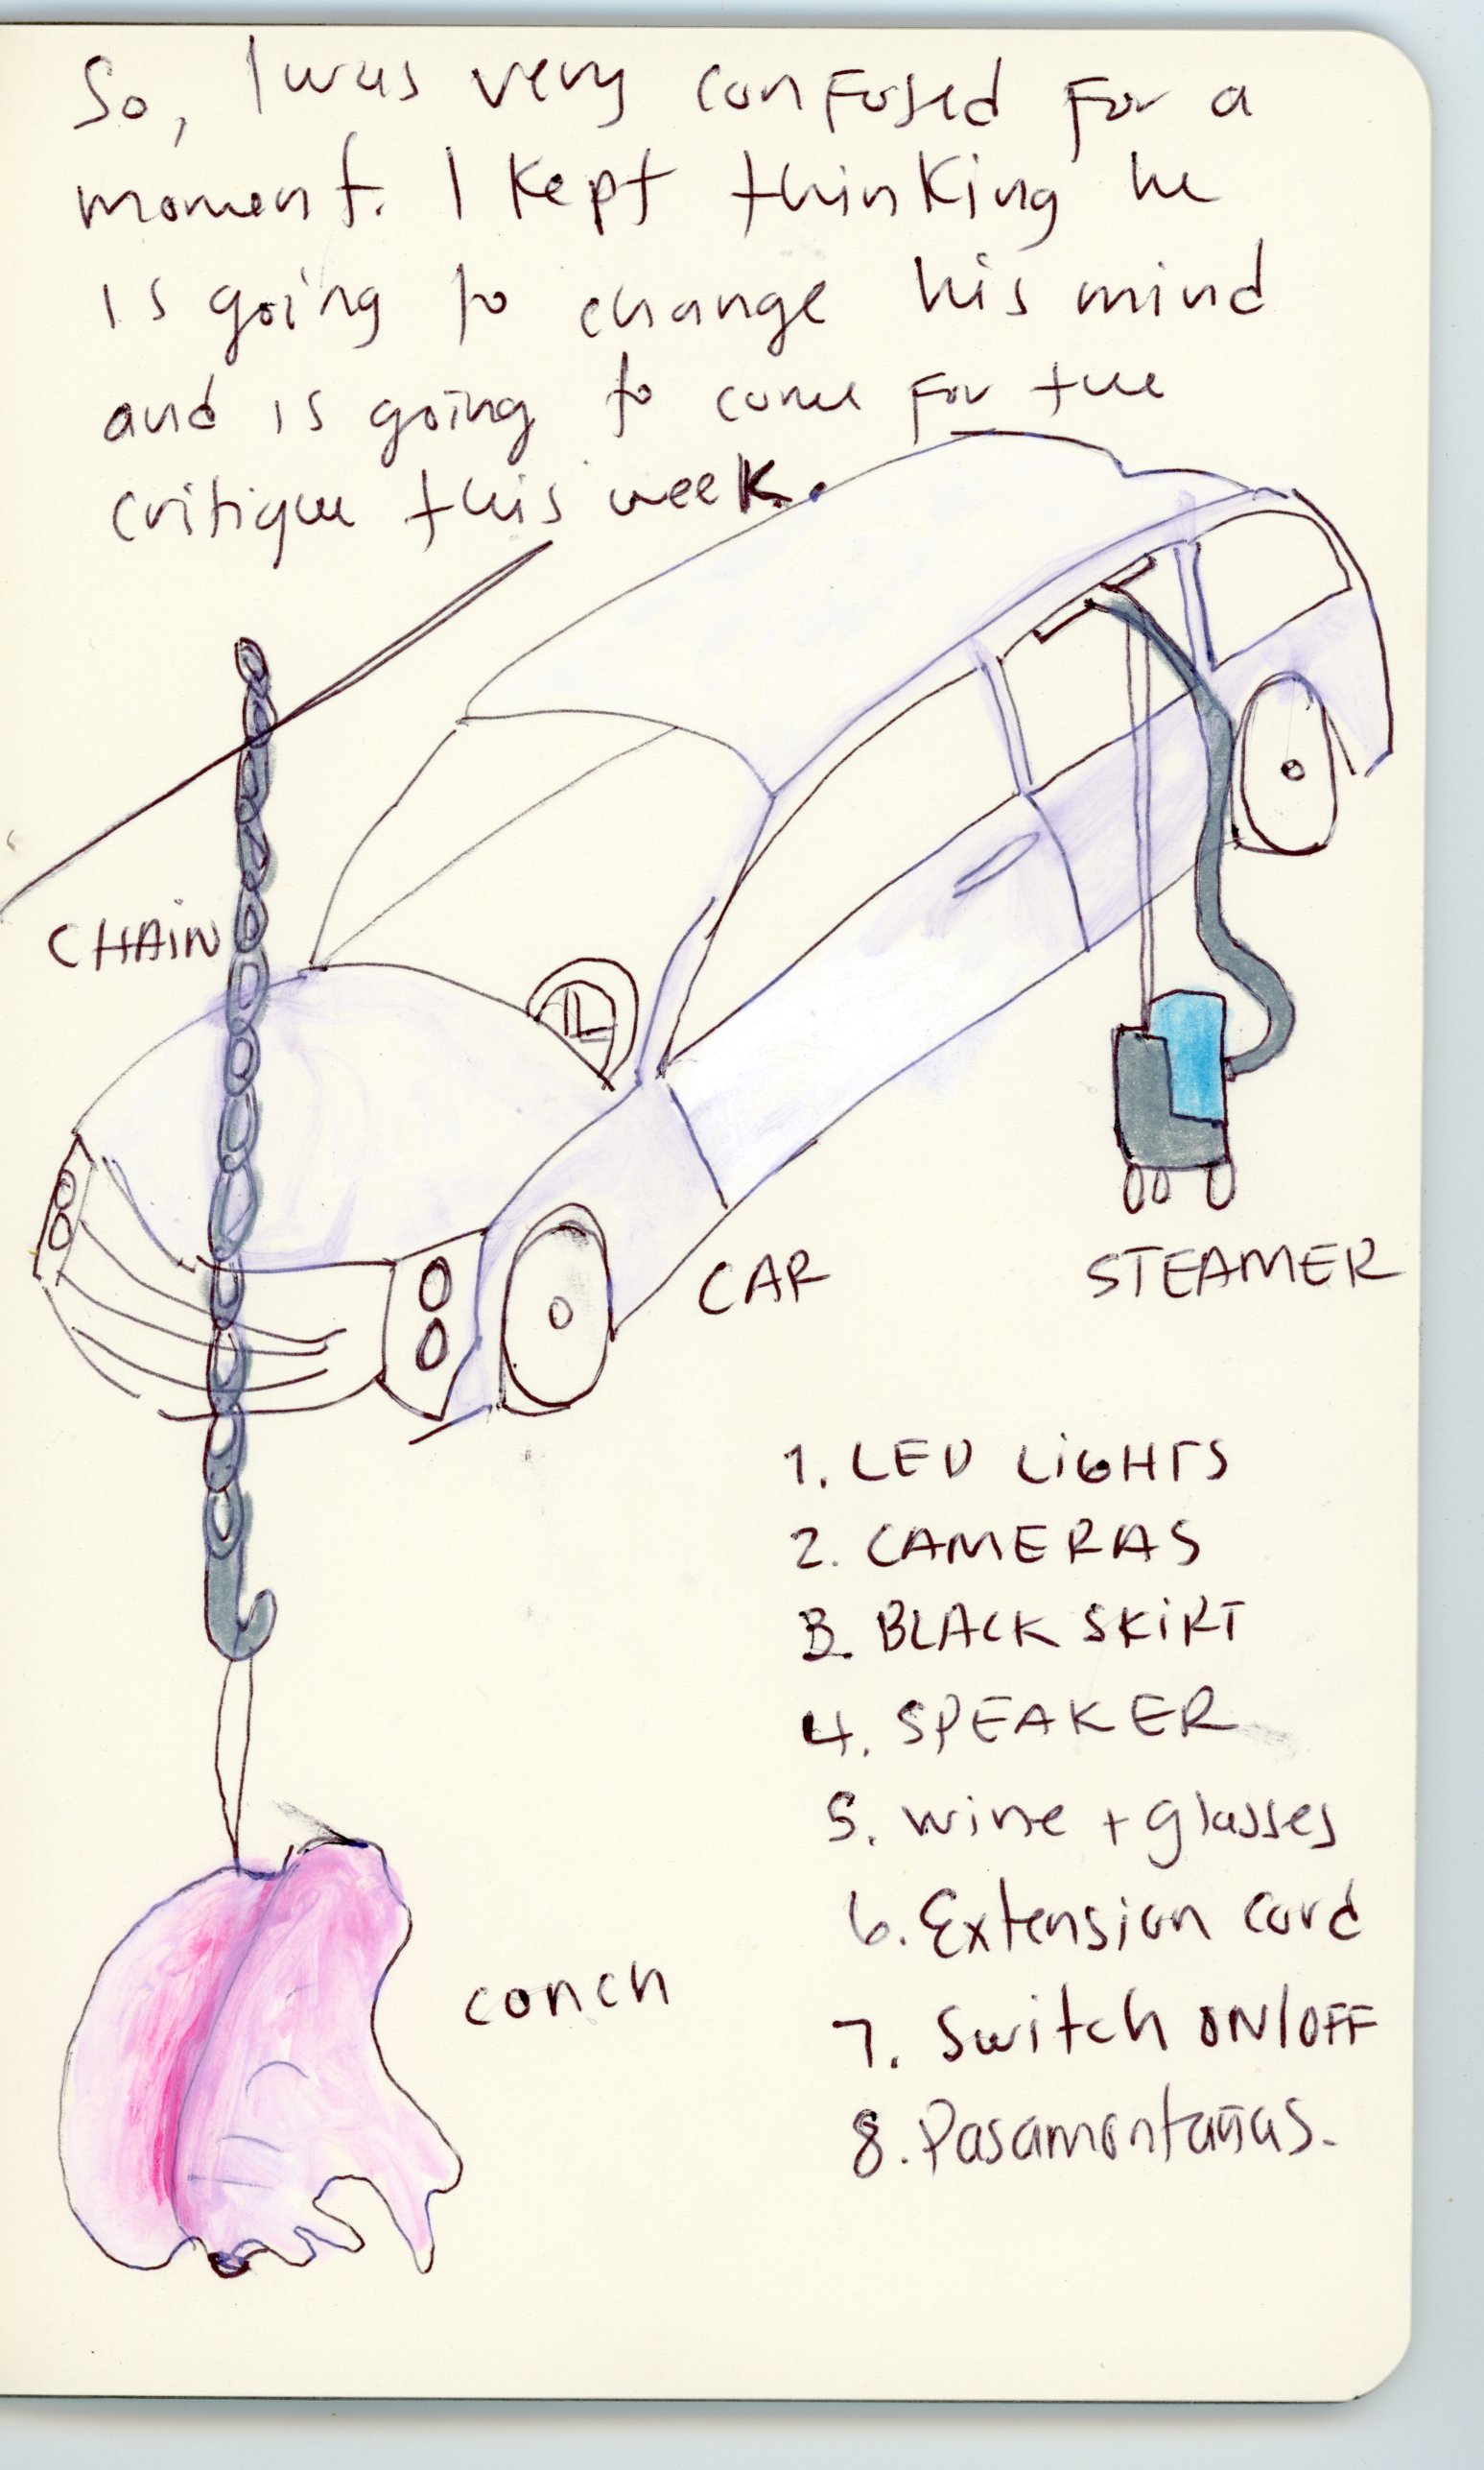 So, I was very confused for a
moment. I kept thinking he
is going to change his mind
and is going to come for the
critique this week.
CHAIN
CAR
STEAMER
1. LED LIGHTS
2. CAMERAS
3. BLACK SKIRT
4. SPEAKER
5. wine + glasses
6. Extension cord
7. Switch ON/OFF
8. Pasamontañas.
conch